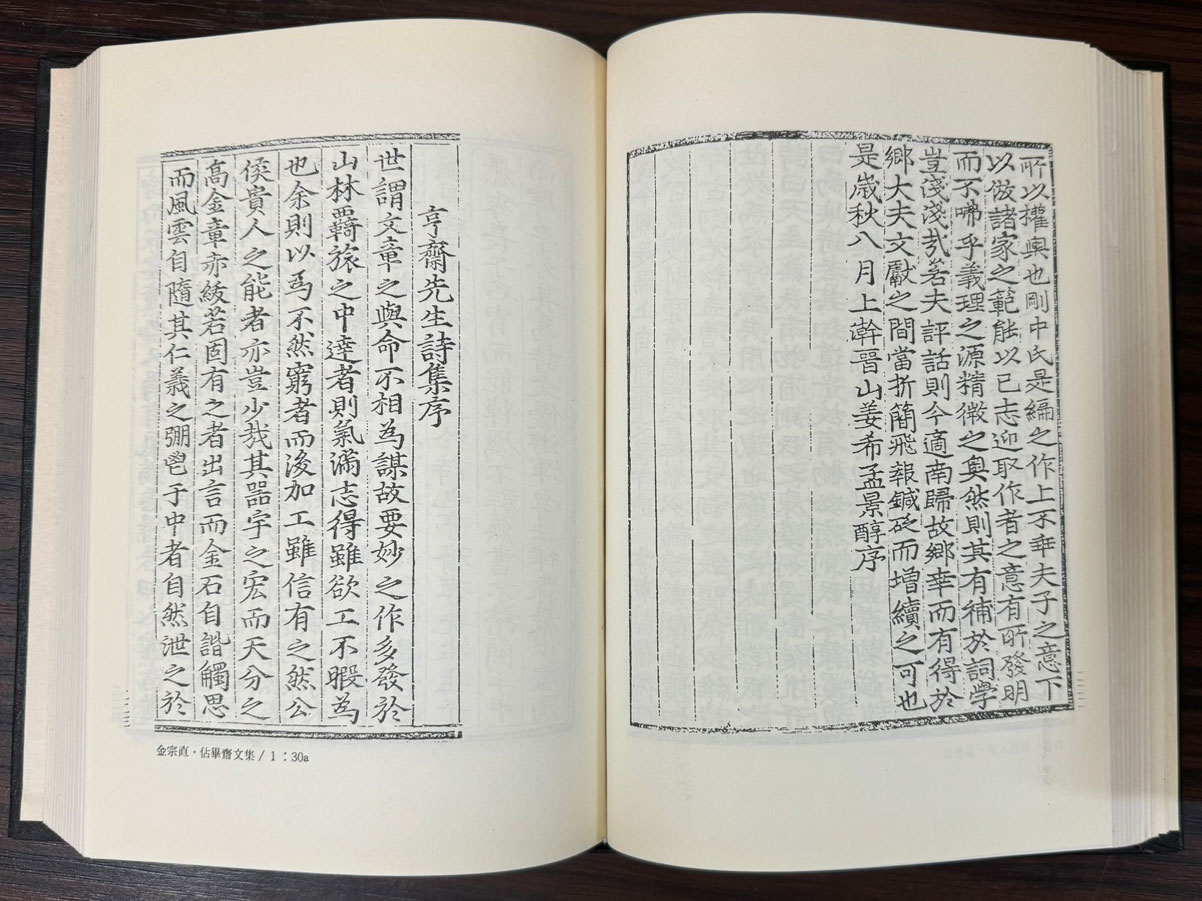 所以權輿也剛中氏是編之作上不牵夫子之意下
以倣諸家之範能以己志迎取作者之意有所發明
而不咈乎義理之源精微之奥然則其有補於詞學
豈淺淺㦲若夫評話則今適南歸故鄉幸而有得於
鄉大夫文獻之間當折簡飛報鍼砭而增續之可也
是歳秋八月上澣晉山姜希孟景醇序
亨齋先生詩集序
世謂文章之與命不相為謀故要妙之作多發於
山林覊旅之中達者則氣滿志得雖欲工不暇為
也余則以爲不然窮者而後加工雖信有之然公
侯貴人之能者亦豈少哉其器宇之宏而天分之
高金章亦綬若固有之者出言而金石自諧觸思
而風雲自隨其仁義之弸鬯于中者自然泄之於
金宗直·佔畢齋文集 / 1 : 30a